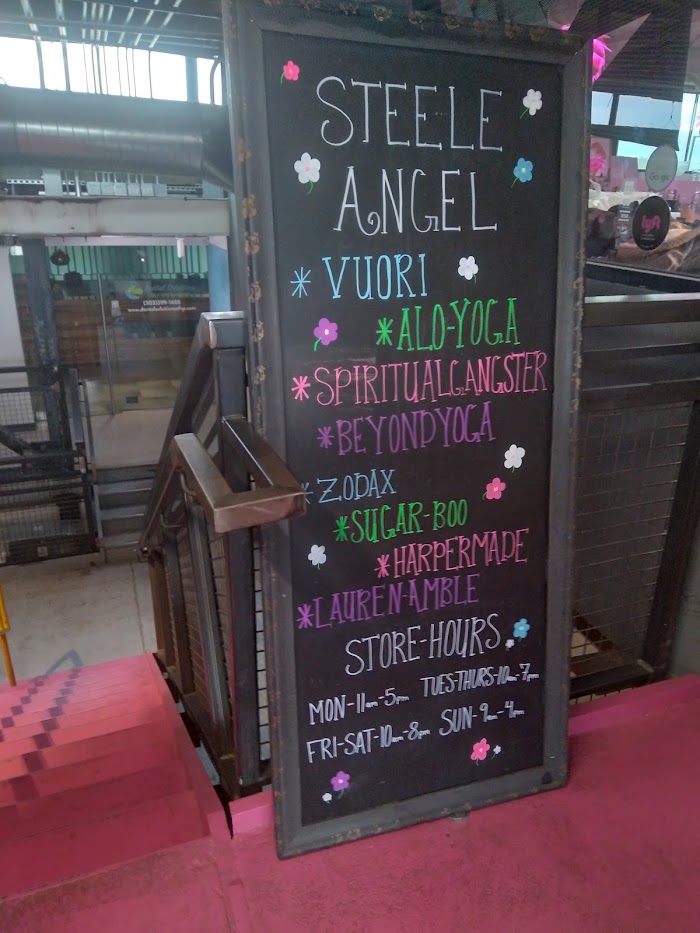 STEELE
ANGEL
*VUORI
*ALO-YOGA
*SPIRITUALGANGSTER
*BEYONDYOGA
*ZODAX
*SUGAR-BOO
*HARPERMADE
*LAUREN-AMBLE
STORE-HOURS
MON-11am-5pm TUES-THURS-10am-7pm
FRI-SAT-10am-8pm SUN-9am-4pm
Google
lyft